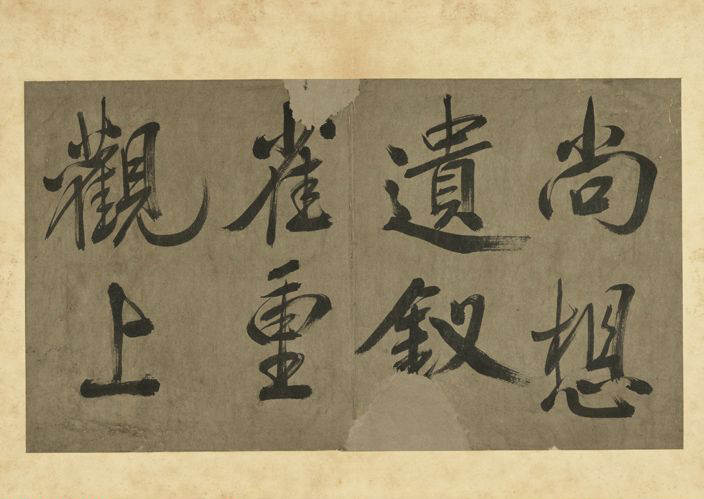 尚想
遺釵
雀重
觀上